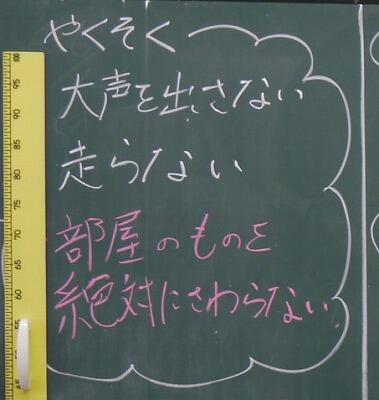 やくそく
大声を出さない
走らない
部屋のものを
絶対にさわらない。
100
95
90
85
80
75
70
65
60
55